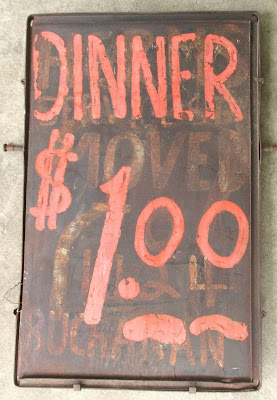 DINNER
MOVED
$1.00
BUCHANAN